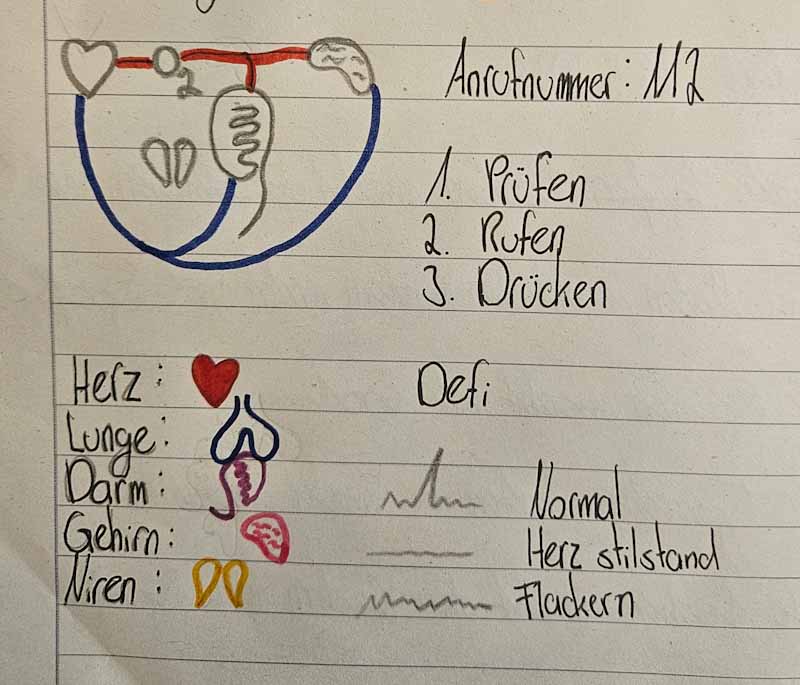 O2
Anrufnummer: 112
1. Prüfen
2. Rufen
3. Drücken
Herz:
Lunge:
Darm:
Gehirn:
Niren:
Defi
Normal
Herz stilstand
Flackern